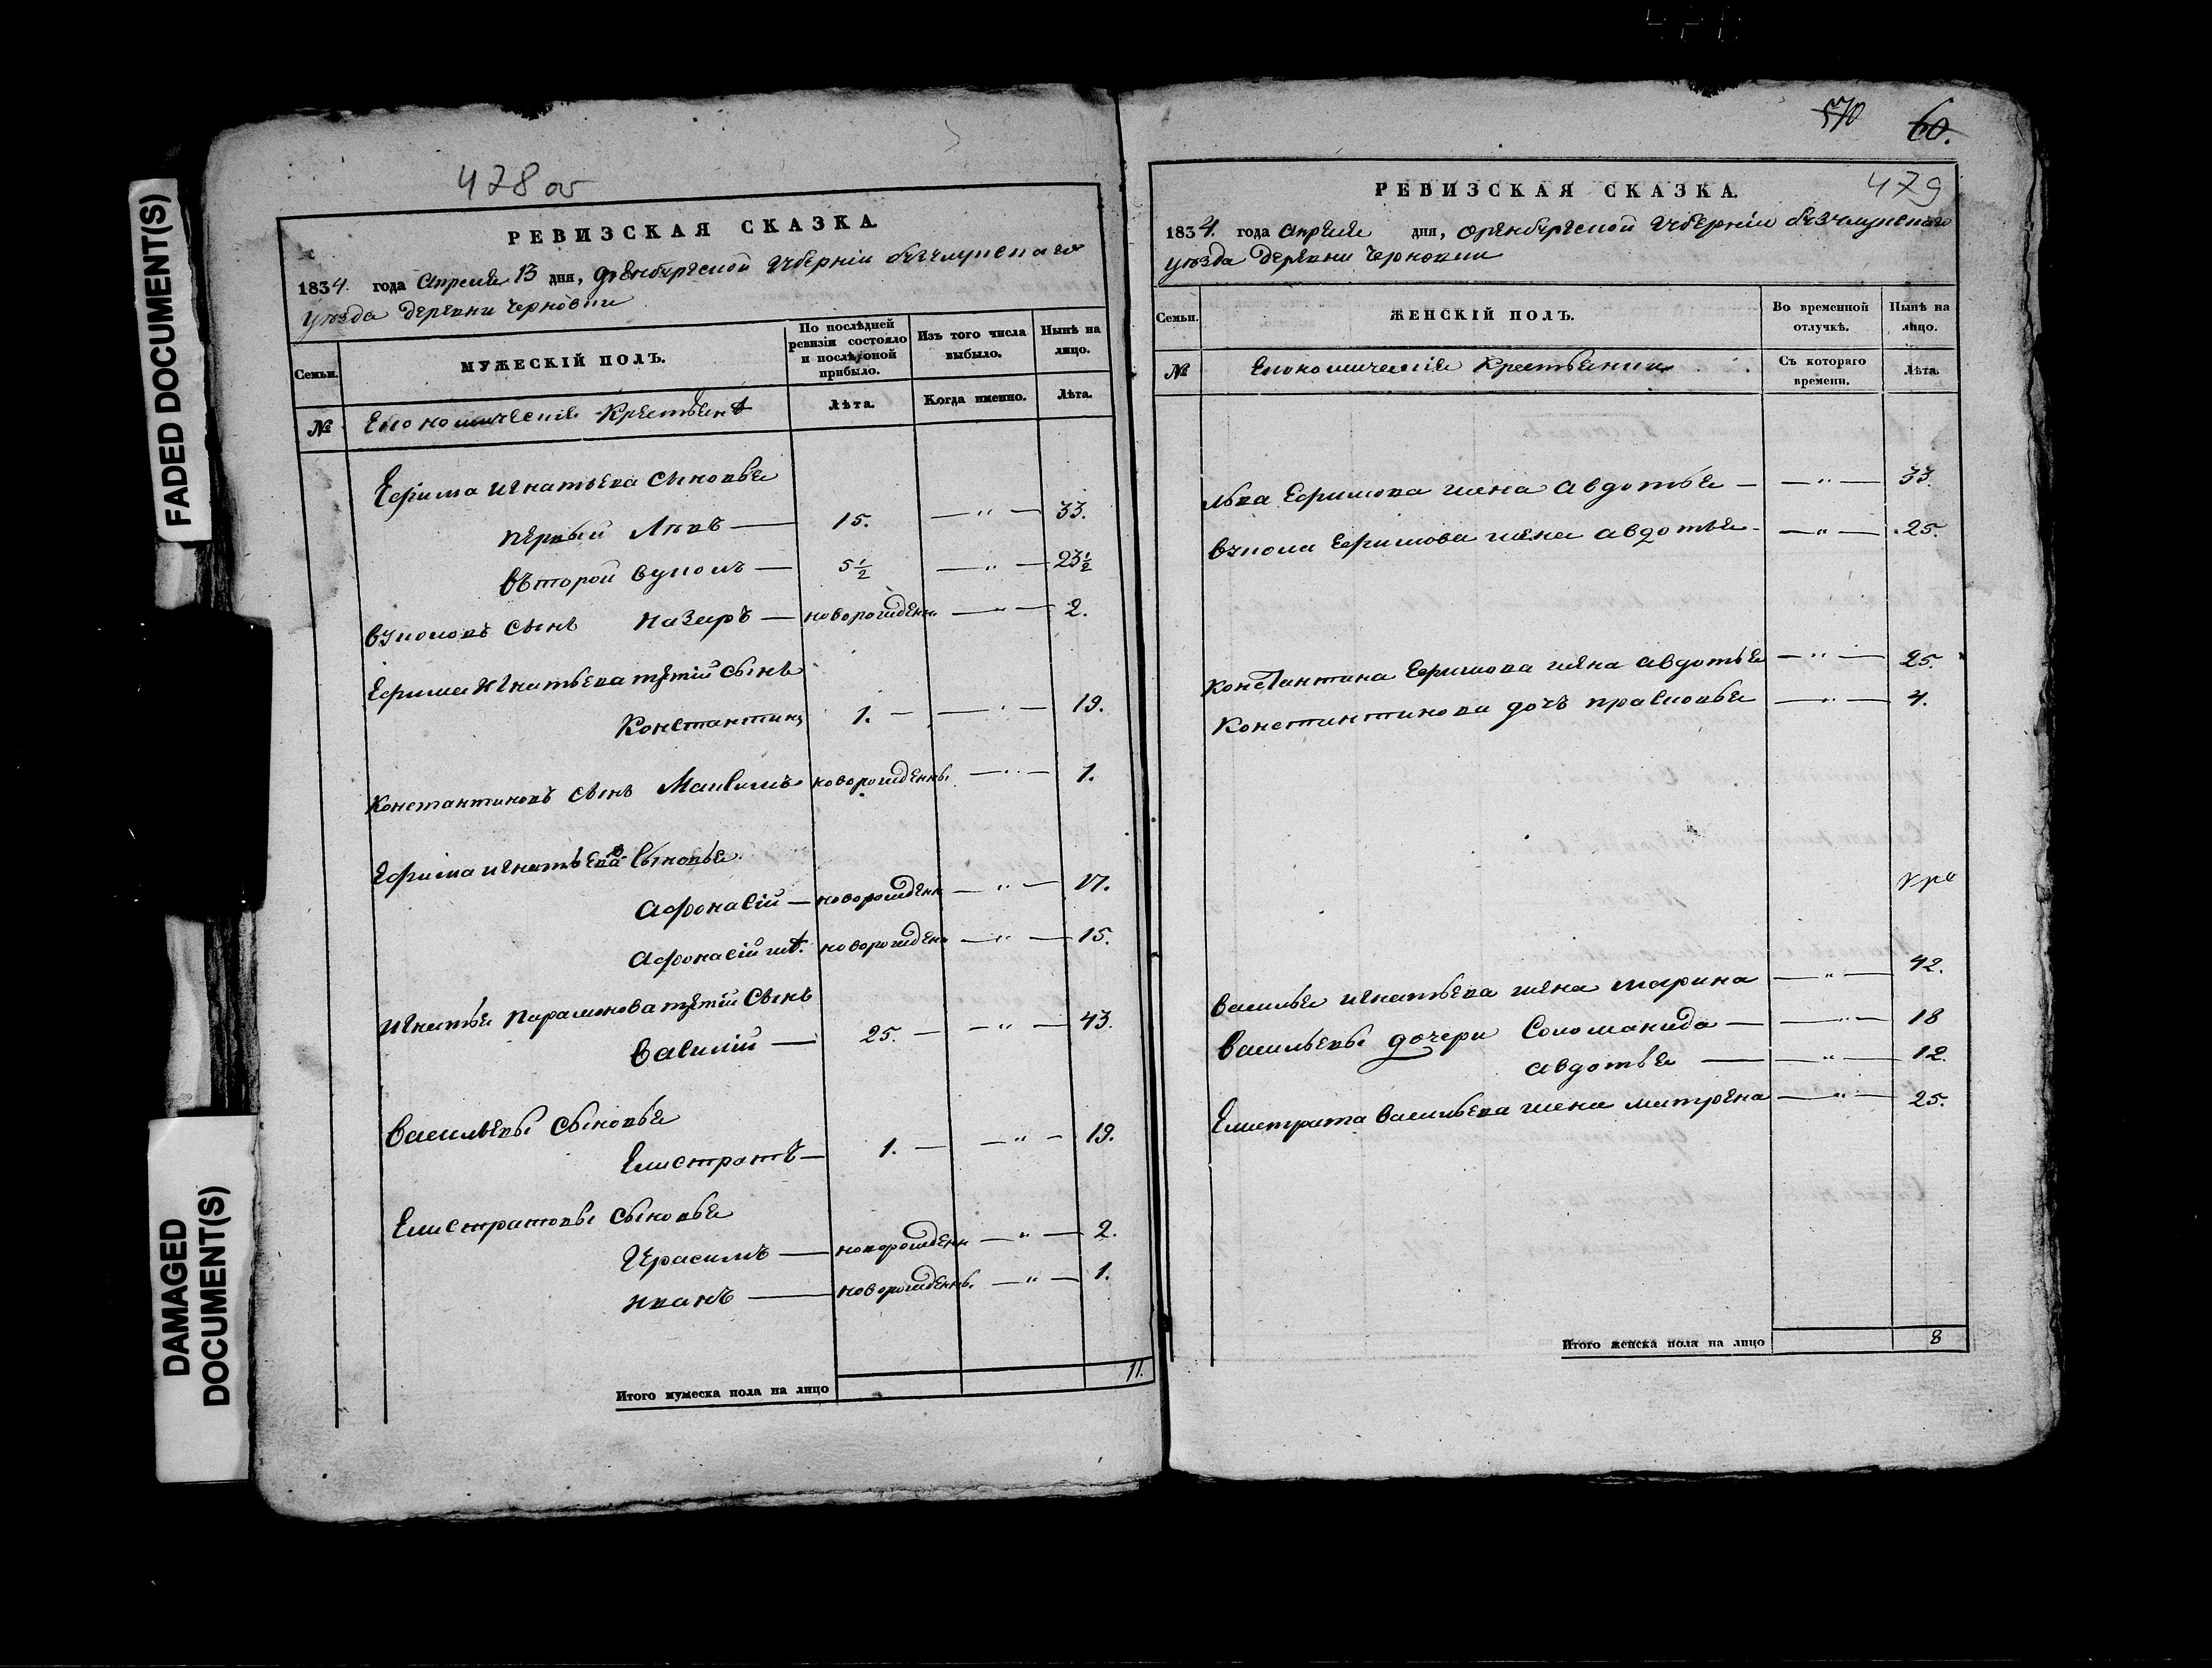 FADED DOCUMENT(S)
DAMAGED
DOCUMENT(S)
478 об
РЕВИЗСКАЯ СКАЗКА.
1834. года Апреля 13 дня, Оренбургской Губернiи
уезда деревни Черновки
Семьи.
МУЖЕСКІЙ ПОЛЪ.
По послѣдней ревизіи состояло и послѣ оной прибыло.
Изъ того числа выбыло.
Нынѣ на лицо.
№
Економическiе Крестьянѣ
Лѣта.
Когда именно.
Лѣта.
Ефима Игнатьева сыновья
первый Левъ — 15. — " — 33.
въторой Вуколъ — 5 1/2 — " — 23 1/2
Вуколовъ сынъ Назаръ — новорожденн. — " — 2.
Ефима Игнатьева третiй сынъ
Константинъ 1. — — " — 19.
Константиновъ сынъ Максимъ новорожденны. — " — 1.
Ефима Игнатьева сыновья
Афонасiй — новорожденн — " — 17.
Афонасiй новорожден — " — 15.
Игнатья Парамонова третiй сынъ
Василiй — 25. — — " — 43.
Васильевы сыновья
Елистратъ — 1. — — " — 19.
Елистратовы сыновья
Герасимъ — новорожденн — " — 2.
Иванъ — новорожденны. — " — 1.
Итого мужеска пола на лицо 11.
570 60.
РЕВИЗСКАЯ СКАЗКА.
479
1834. года Апреля дня, Оренбургской Губернiи
уезда деревни Черновки
Семьи.
ЖЕНСКІЙ ПОЛЪ.
Во временной отлучкѣ.
Нынѣ на лицо.
№
Економическiе Крестьянки
Съ котораго времени.
Лѣта.
Льва Ефимова жена Авдотья — — " — 33.
Вукола Ефимова жена Авдотья — — " — 25.
Константина Ефимова жена Авдотья — " — 25.
Константинова дочь Прасковья — " — 4.
Василья Игнатьева жена Марина — " — 42.
Васильевы дочери Соломанида — — " — 18
Авдотья — — " — 12.
Елистрата Васильева жена Матрена — " — 25.
Итого женска пола на лицо 8